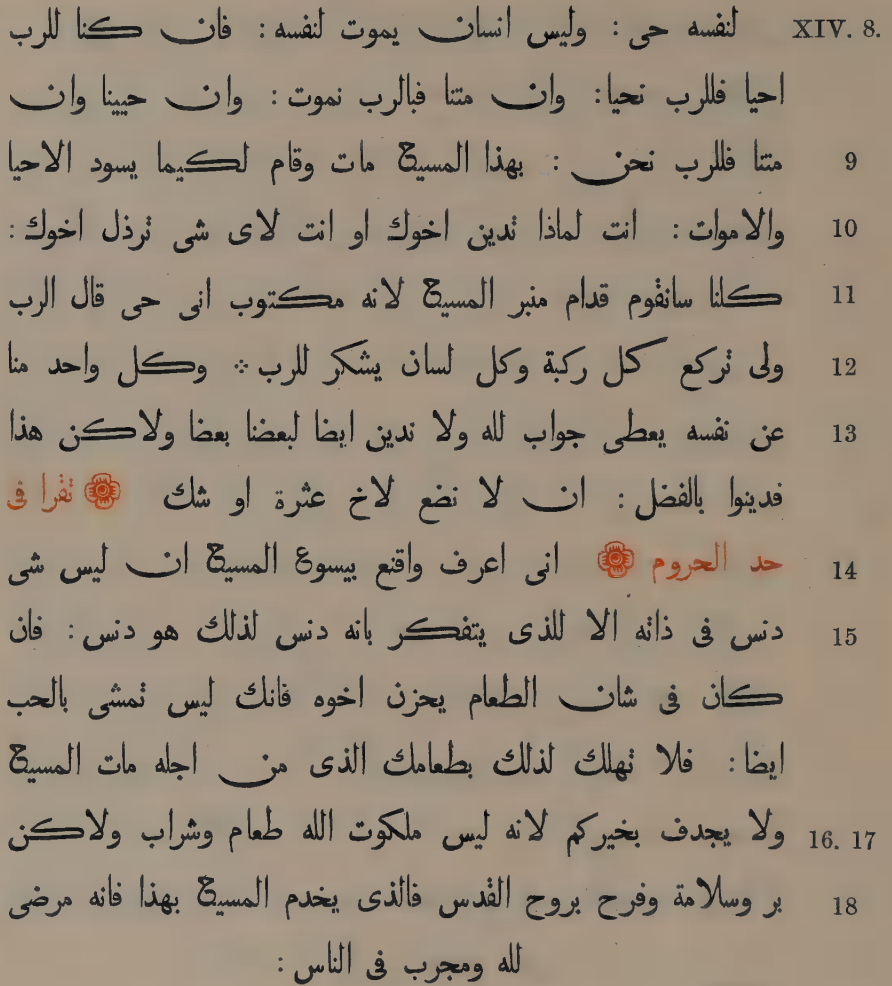 XIV. 8. لنفسه حى : وليس انسان يموت لنفسه : فان كنا للرب
احيا فللرب نحيا : وان متنا فبالرب نموت : وان حيينا وان
9 متنا فللرب نحن : بهذا المسيح مات وقام لكيما يسود الاحيا
10 والاموات : انت لماذا تدين اخوك او انت لاى شى ترذل اخوك :
11 كلنا سانقوم قدام منبر المسيح لانه مكتوب انى حى قال الرب
12 ولى تركع كل ركبة وكل لسان يشكر للرب ܀ وكل واحد منا
13 عن نفسه يعطى جواب لله ولا ندين ايضا لبعضنا بعضا ولاكن هذا
فدينوا بالفضل : ان لا نضع لاخ عثرة او شك تقرا فى
14 حد الحروم انى اعرف واقنع بيسوع المسيح ان ليس شى
15 دنس فى ذاته الا للذى يتفكر بانه دنس لذلك هو دنس : فان
كان فى شان الطعام يحزن اخوه فانك ليس تمشى بالحب
ايضا : فلا تهلك لذلك بطعامك الذى من اجله مات المسيح
16. 17 ولا يجدف بخيركم لانه ليس ملكوت الله طعام وشراب ولاكن
18 بر وسلامة وفرح بروح القدس فالذى يخدم المسيح بهذا فانه مرضى
لله ومجرب فى الناس :